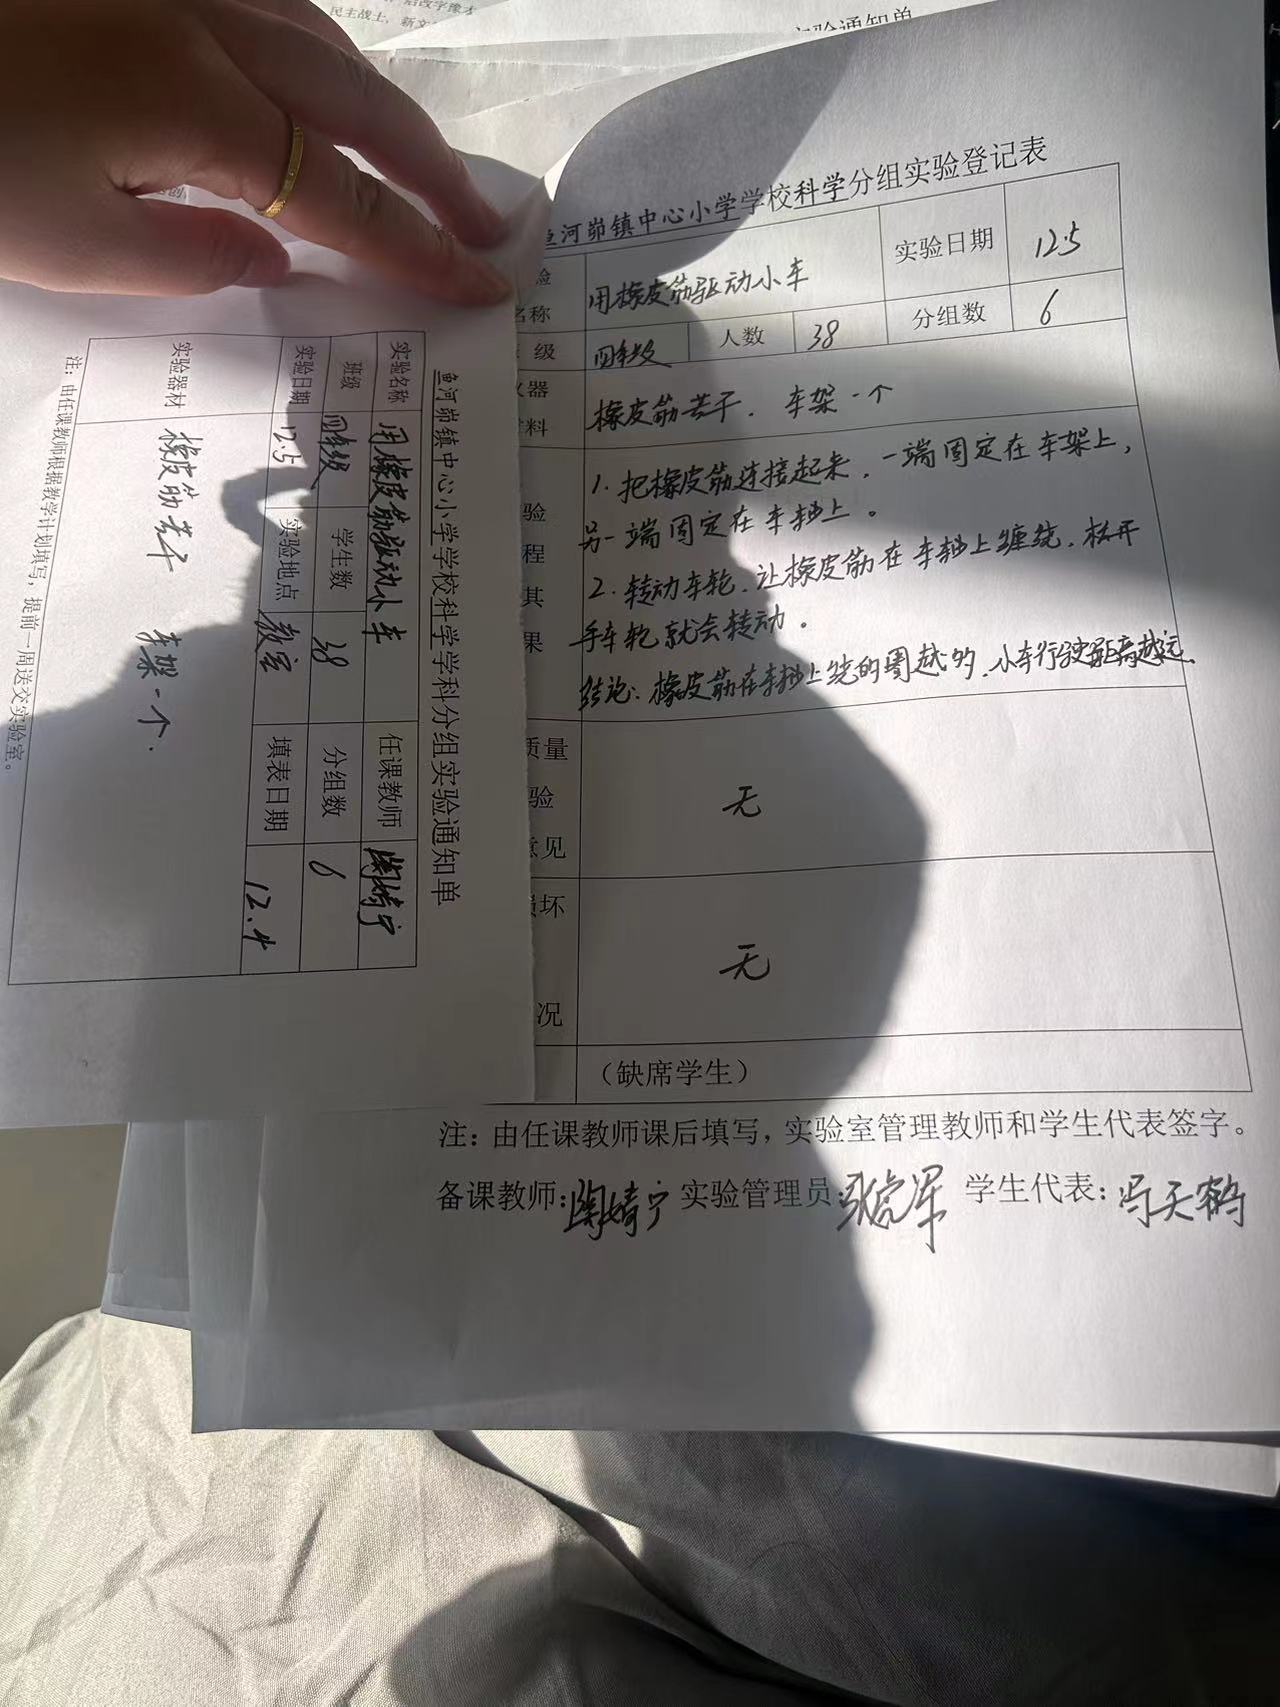 民主战士，新文
实验通知单
鱼河峁镇中心小学学校科学分组实验登记表
验
名称
用橡皮筋驱动小车
实验日期
12.5
级
四年级
人数
38
分组数
6
器
料
橡皮筋若干． 车架一个
验
程
其
果
1. 把橡皮筋连接起来，一端固定在车架上，
另一端固定在车轴上。
2. 转动车轮，让橡皮筋在车轴上缠绕，松开
手车轮就会转动。
结论：橡皮筋在车轴上绕的圈越多，小车行驶距离越远．
质量
验
意见
无
损坏
况
无
（缺席学生）
注：由任课教师课后填写，实验室管理教师和学生代表签字。
备课教师：陶婧宁 实验管理员： 学生代表：冯天鹤
鱼河峁镇中心小学学校科学学科分组实验通知单
实验名称 用橡皮筋驱动小车 任课教师 陶婧宁
班级 四年级 学生数 38 分组数 6
实验日期 12.5 实验地点 教室 填表日期 12.4
实验器材 橡皮筋若干 车架一个．
注：由任课教师根据教学计划填写，提前一周送交实验室。